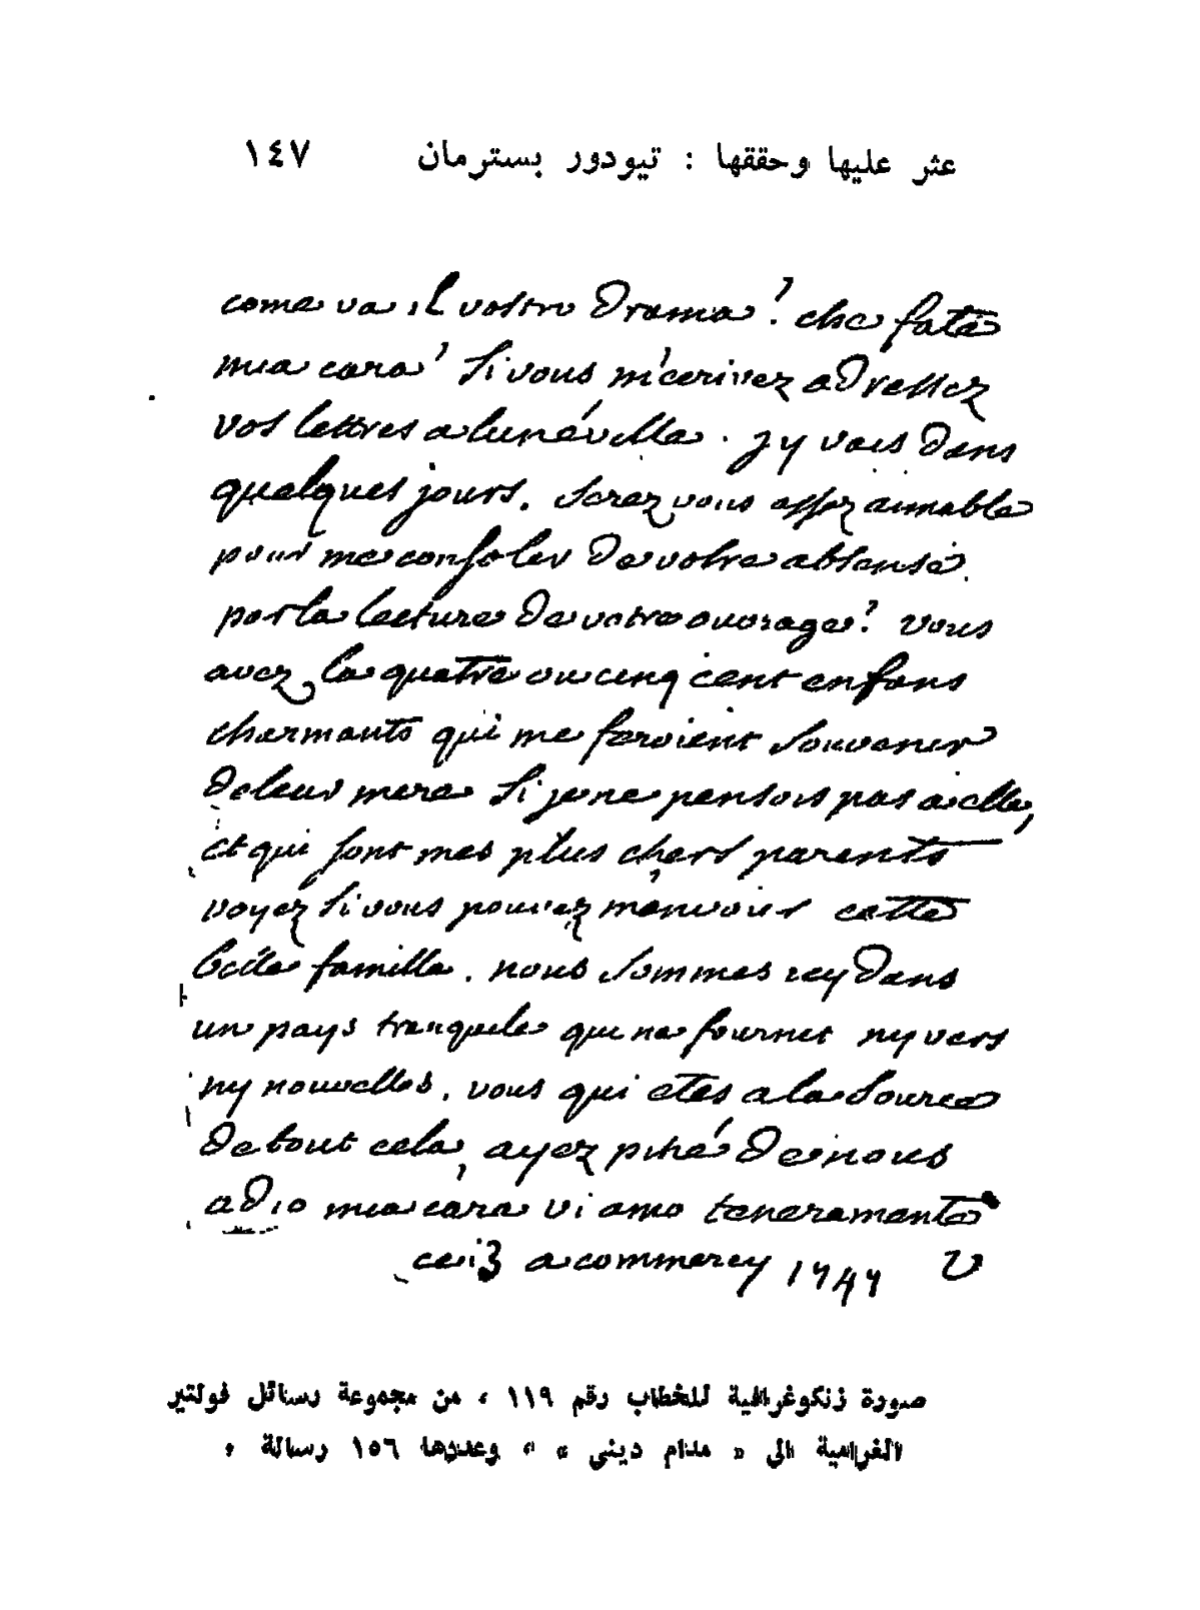 عثر عليها وحققها : تيودور بسترمان ١٤٧
come va il vostro drama? che fate
mia cara? si vous m'ecrivez adressez
vos lettres a lunéville. j y vais dans
quelques jours. serez vous assez aimable
pour me consoler de votre absense
par la lecture de votre ouvrage? vous
avez la quatre ou cinq cent enfans
charmants qui me feroient souvenir
de leur mere si je ne pensois pas a elle,
et qui sont mes plus chers parents
voyez si vous pouvez m'envoier cette
belle famille. nous sommes icy dans
un pays tranquile qui ne fournit ny vers
ny nouvelles. vous qui etes a la source
de tout cela, ayez pitié de nous
adio mia cara vi amo teneramente
ce 13 a commercy 1747 V
صورة زنكوغرافية للخطاب رقم ١١٩ ، من مجموعة رسائل فولتير
الغرامية الى « مدام دينى » ، وعددها ١٥٦ رسالة .